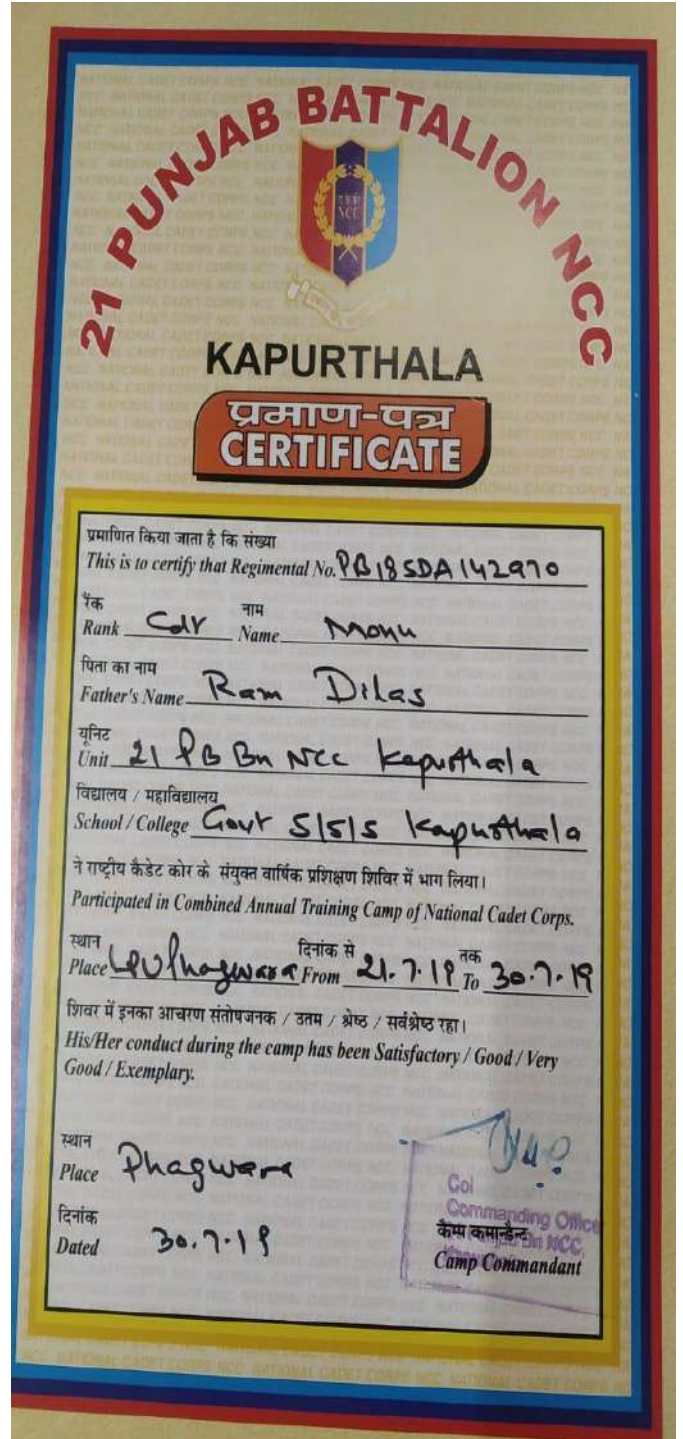 21 PUNJAB BATTALION NCC
NCC
KAPURTHALA
प्रमाण-पत्र
CERTIFICATE
प्रमाणित किया जाता है कि संख्या
This is to certify that Regimental No. PB18SDA142970
रैंक नाम
Rank Cdt Name Monu
पिता का नाम
Father's Name Ram Dilas
यूनिट
Unit 21 PB Bn NCC Kapurthala
विद्यालय / महाविद्यालय
School / College Govt S/S/S Kapurthala
ने राष्ट्रीय कैडेट कोर के संयुक्त वार्षिक प्रशिक्षण शिविर में भाग लिया।
Participated in Combined Annual Training Camp of National Cadet Corps.
स्थान दिनांक से तक
Place LPU Phagwara From 21.7.19 To 30.7.19
शिवर में इनका आचरण संतोषजनक / उतम / श्रेष्ठ / सर्वश्रेष्ठ रहा।
His/Her conduct during the camp has been Satisfactory / Good / Very
Good / Exemplary.
स्थान
Place Phagwara
दिनांक
Dated 30.7.19
Col
Commanding Office
कैम्प कमान्डेन्ट
Bn NCC,
Camp Commandant